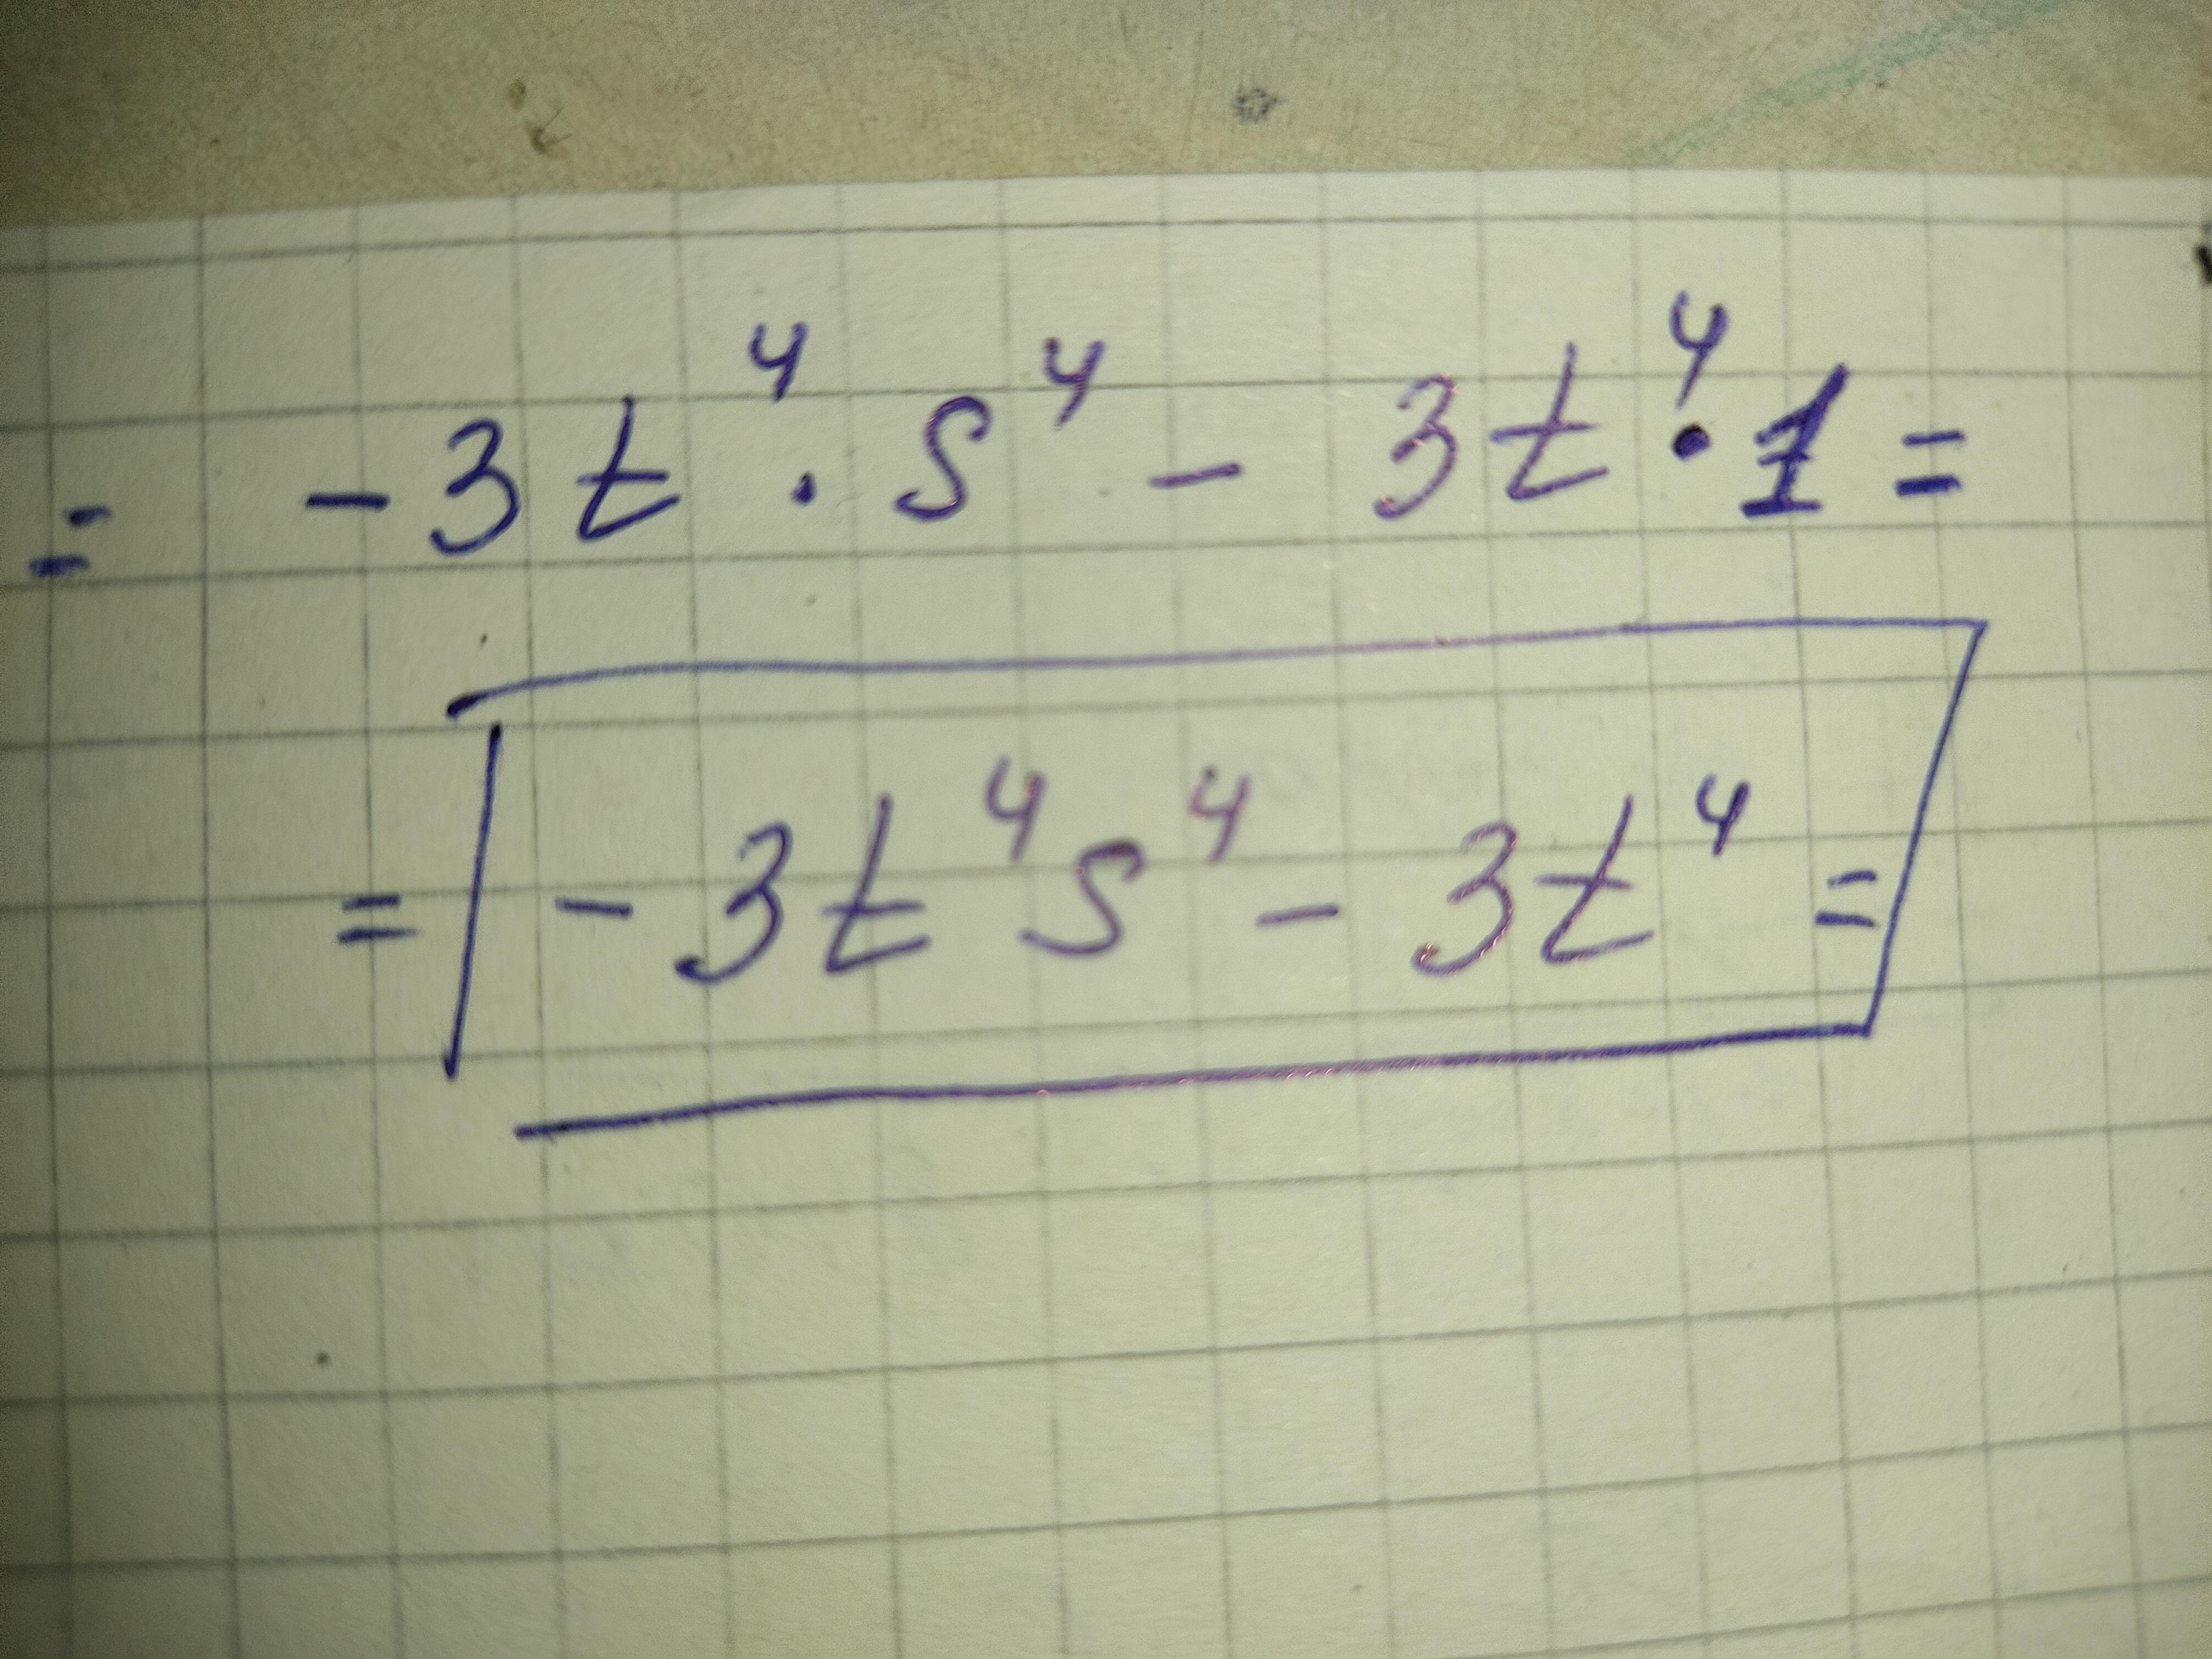 = -3t⁴ · s⁴ - 3t⁴ · 1 =
= -3t⁴s⁴ - 3t⁴ =